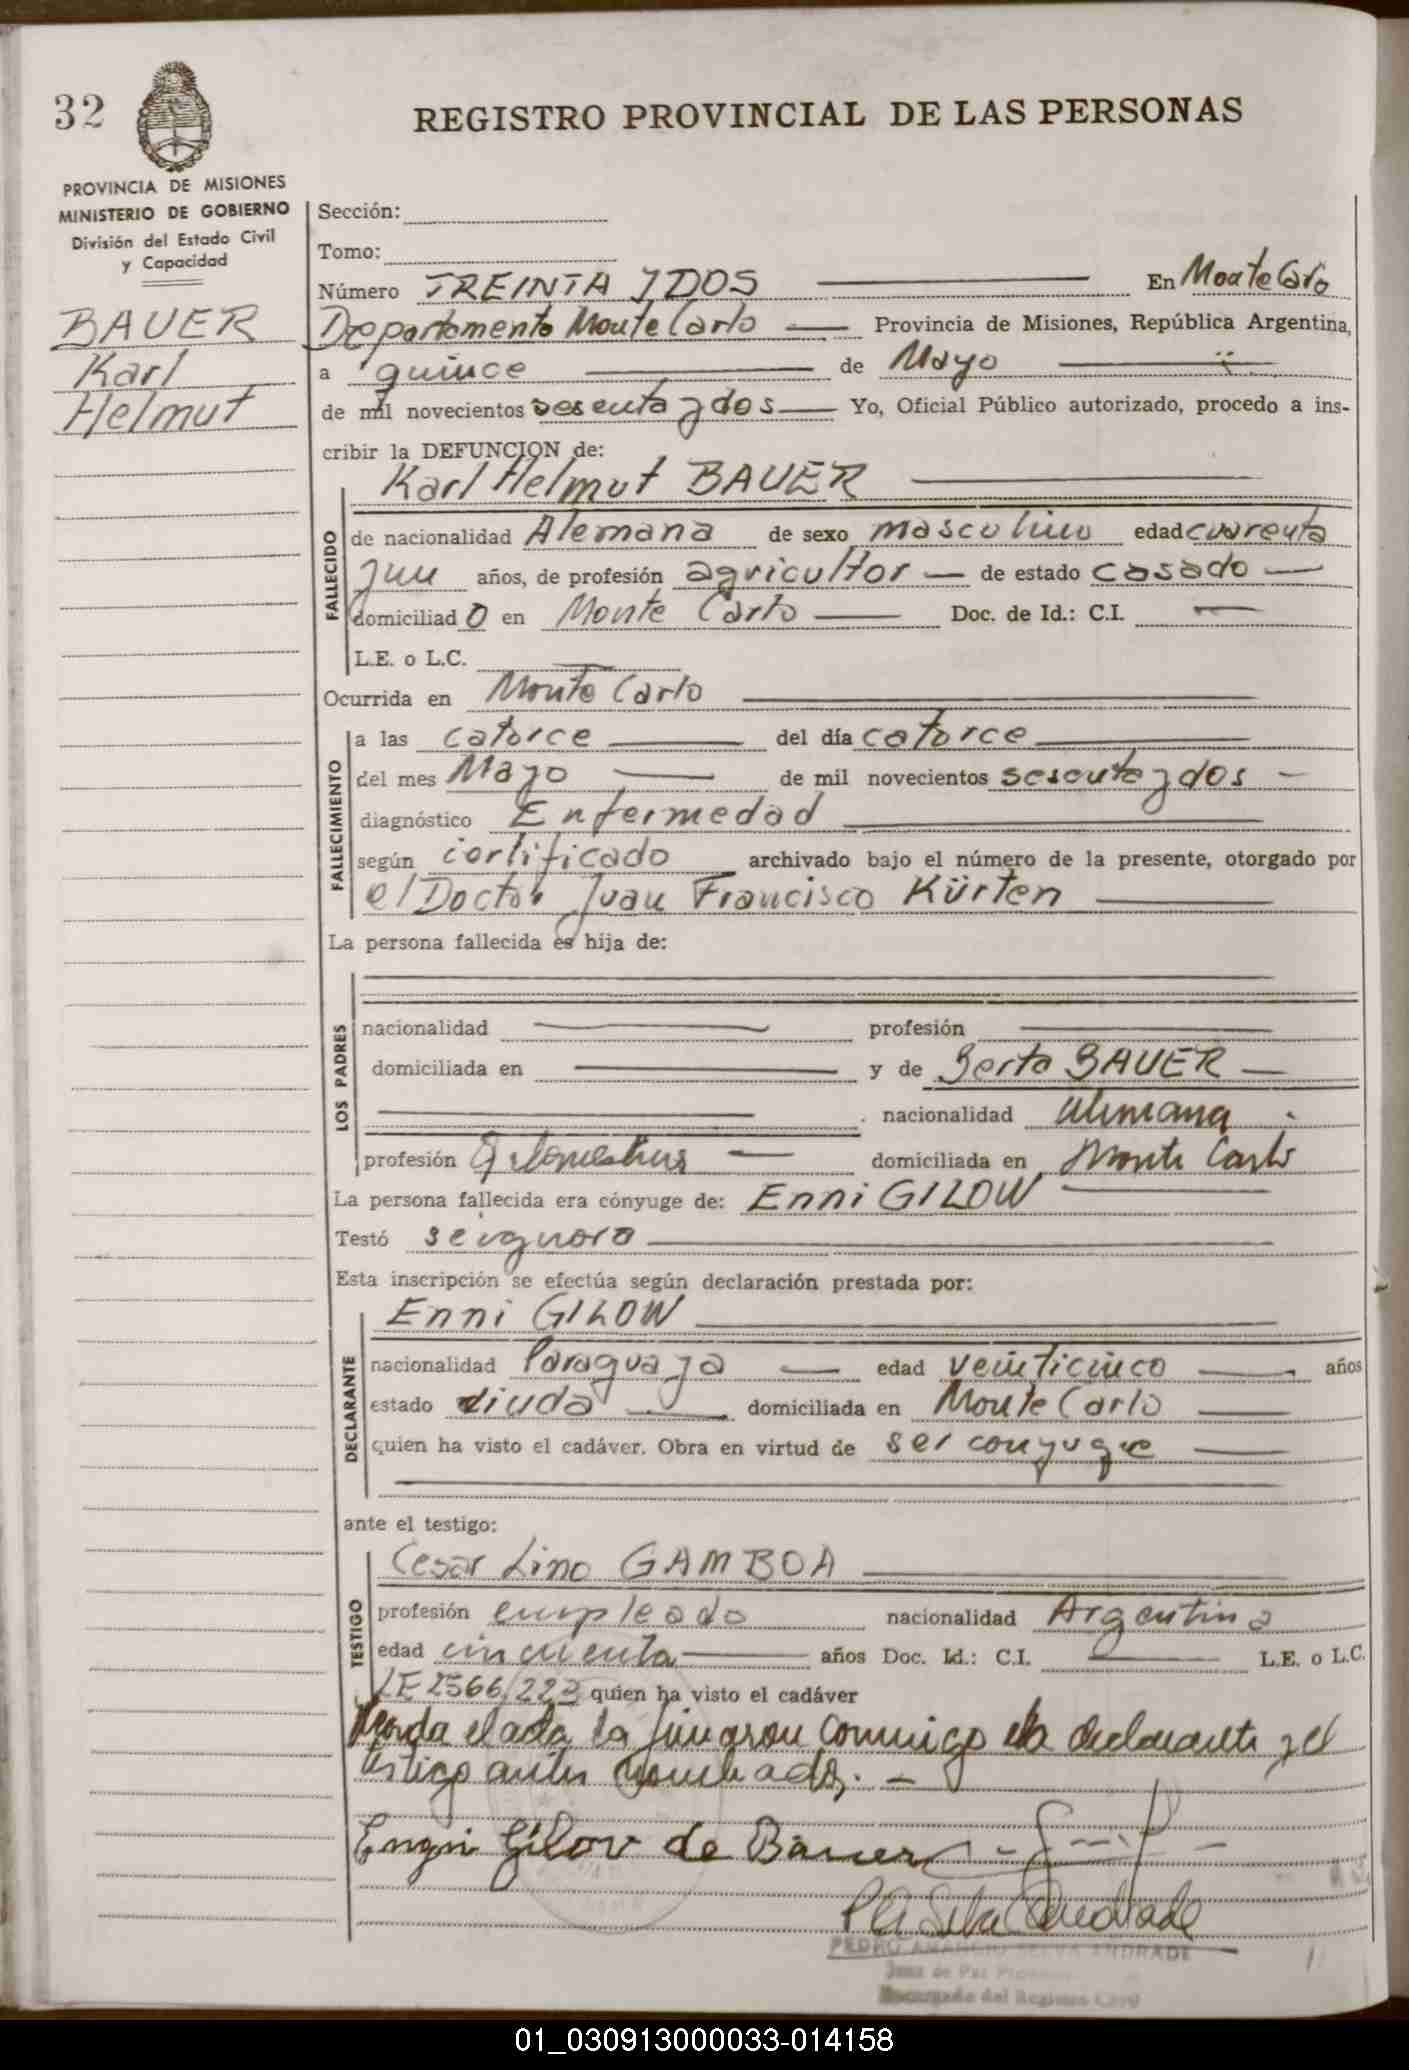 32
REGISTRO PROVINCIAL DE LAS PERSONAS
PROVINCIA DE MISIONES
MINISTERIO DE GOBIERNO
División del Estado Civil
y Capacidad
BAUER
Karl
Helmut
Sección:
Tomo:
Número TREINTA Y DOS En Monte Carlo
Departamento Monte Carlo Provincia de Misiones, República Argentina,
a quince de Mayo
de mil novecientos sesenta y dos Yo, Oficial Público autorizado, procedo a ins-
cribir la DEFUNCION de:
Karl Helmut BAUER
FALLECIDO
de nacionalidad Alemana de sexo masculino edad cuarenta
y un años, de profesión agricultor de estado casado
domiciliado en Monte Carlo Doc. de Id.: C.I.
L.E. o L.C.
Ocurrida en Monte Carlo
FALLECIMIENTO
a las catorce del día catorce
del mes Mayo de mil novecientos sesenta y dos
diagnóstico Enfermedad
según certificado archivado bajo el número de la presente, otorgado por
el Doctor Juan Francisco Kürten
La persona fallecida es hija de:
LOS PADRES
nacionalidad profesión
domiciliada en y de Berta BAUER
nacionalidad alemana
profesión domiciliada en Monte Carlo
La persona fallecida era cónyuge de: Enni GILOW
Testó se ignora
Esta inscripción se efectúa según declaración prestada por:
Enni GILOW
DECLARANTE
nacionalidad Paraguaya edad veinticinco años
estado viuda domiciliada en Monte Carlo
quien ha visto el cadáver. Obra en virtud de ser conyugue
ante el testigo:
Cesar Lino GAMBOA
TESTIGO
profesión empleado nacionalidad Argentina
edad cincuenta años Doc. Id.: C.I. L.E. o L.C.
LE 2566.223 quien ha visto el cadáver
el acta la firmaron conmigo la declarante y el
testigo antes nombrado.
Gilow de Bauer
PEDRO AMANCIO SELVA ANDRADE
Juez de Paz
Encargado del Registro Civil
01_030913000033-014158